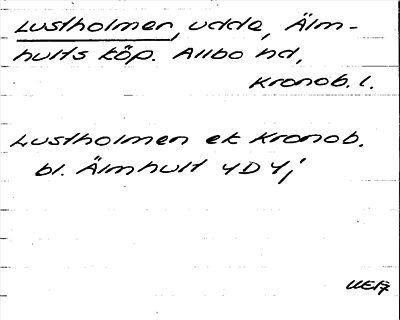 Lustholmen, udde, Älm-
hults köp. Allbo hd,
Kronob. l.
Lustholmen ek Kronob.
bl. Älmhult 4D4j